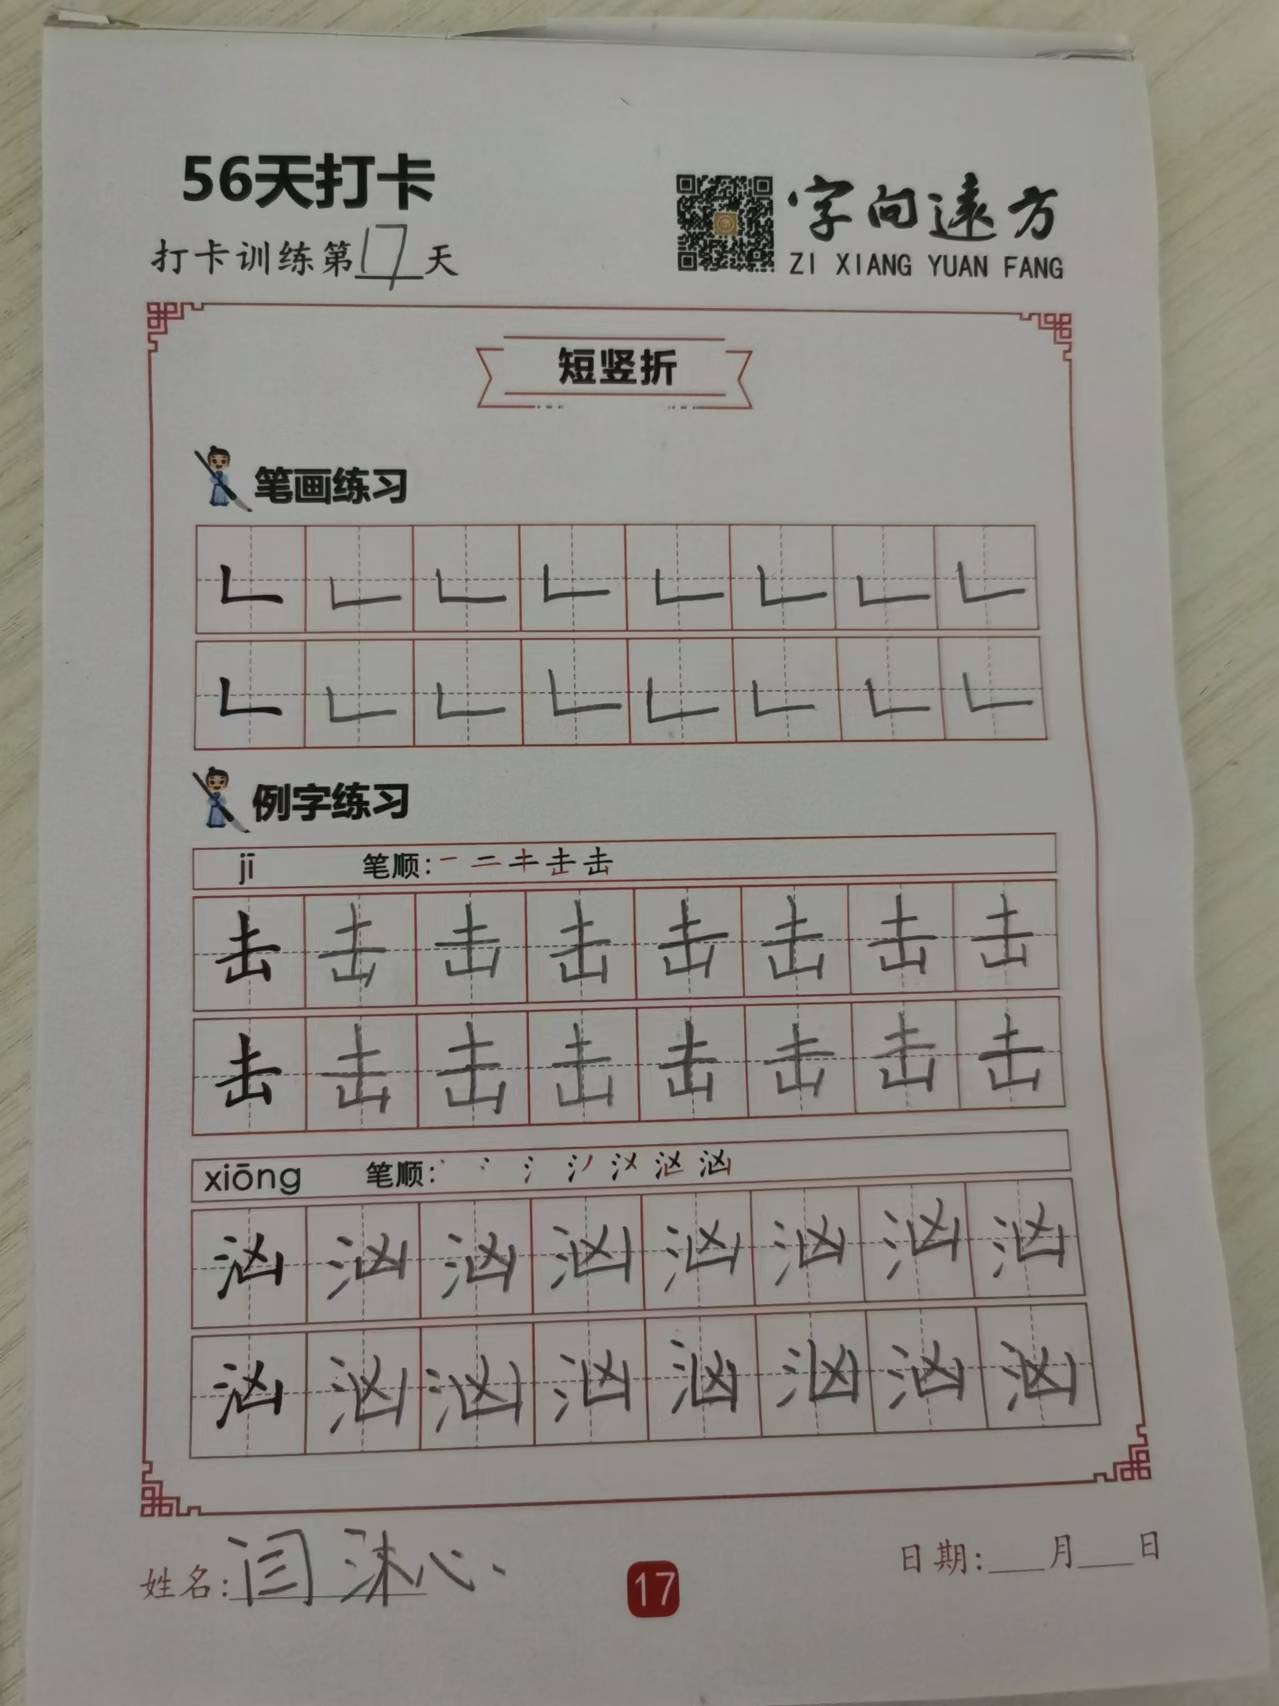 56天打卡
打卡训练第17天
字向远方
ZI XIANG YUAN FANG
短竖折
笔画练习
𠃊 𠃊 𠃊 𠃊 𠃊 𠃊 𠃊 𠃊
𠃊 𠃊 𠃊 𠃊 𠃊 𠃊 𠃊 𠃊
例字练习
jī 笔顺:一 二 キ 击 击
击 击 击 击 击 击 击 击
击 击 击 击 击 击 击 击
xiōng 笔顺:
汹 汹 汹 汹 汹 汹 汹 汹
汹 汹 汹 汹 汹 汹 汹 汹
姓名:闫沐心
17
日期:___月___日